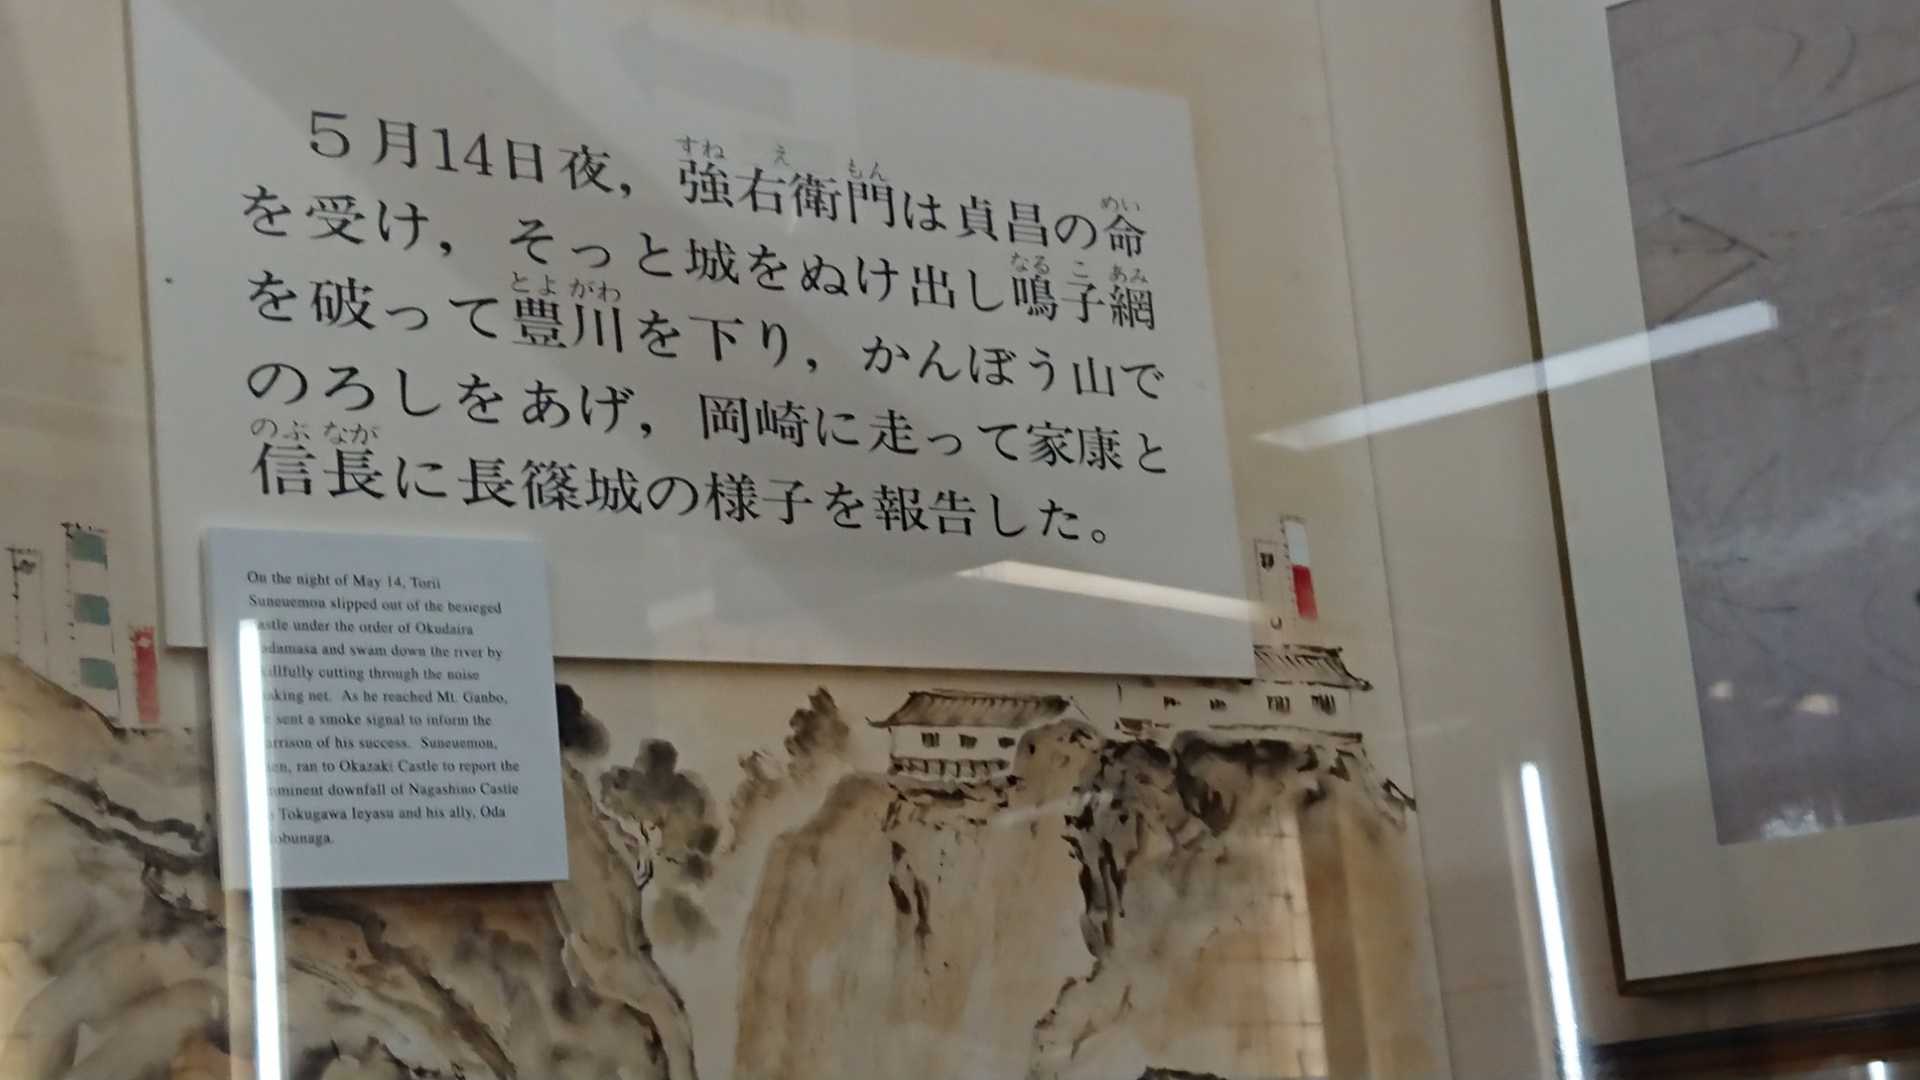 5月14日夜，強右衛門は貞昌の命
を受け，そっと城をぬけ出し鳴子網
を破って豊川を下り，かんぼう山で
のろしをあげ，岡崎に走って家康と
信長に長篠城の様子を報告した。
On the night of May 14, Torii
Suneuemon slipped out of the besieged
astle under the order of Okudaira
adamasa and swam down the river by
killfully cutting through the noise
aking net. As he reached Mt. Ganbo,
e sent a smoke signal to inform the
arrison of his success. Suneuemon,
en, ran to Okazaki Castle to report the
mminent downfall of Nagashino Castle
Tokugawa Ieyasu and his ally, Oda
obunaga.